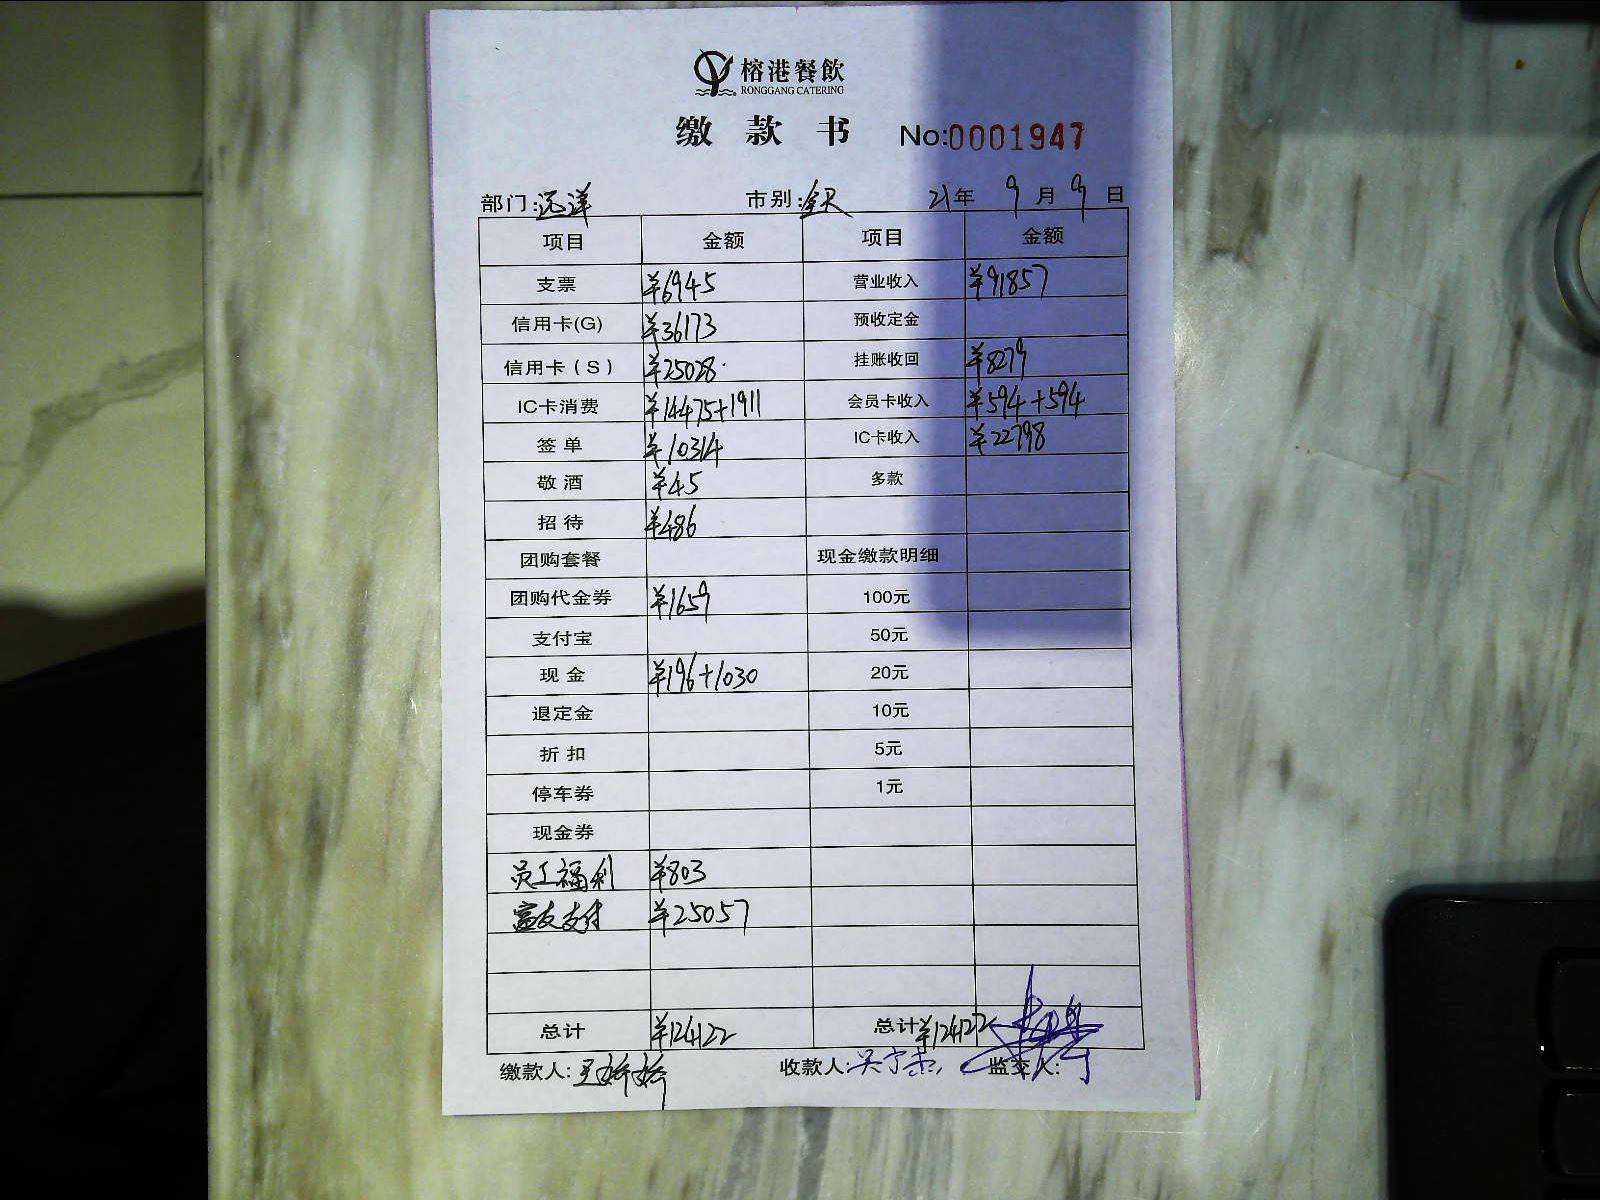 榕港餐飲
RONGGANG CATERING
缴款书 No:0001947
部门:远洋 市别:全天 21年 9月 9日
项目 金额 项目 金额
支票 ¥6945 营业收入 ¥91857
信用卡(G) ¥36173 预收定金
信用卡(S) ¥25028 挂账收回 ¥8279
IC卡消费 ¥14475+1911 会员卡收入 ¥594+594
签单 ¥10314 IC卡收入 ¥22798
敬酒 ¥45 多款
招待 ¥486
团购套餐 现金缴款明细
团购代金券 ¥1659 100元
支付宝 50元
现金 ¥196+1030 20元
退定金 10元
折扣 5元
停车券 1元
现金券
员工福利 ¥803
富友支付 ¥25057
总计 ¥124122 总计 ¥124122
缴款人:王娇娇 收款人: 监交人: